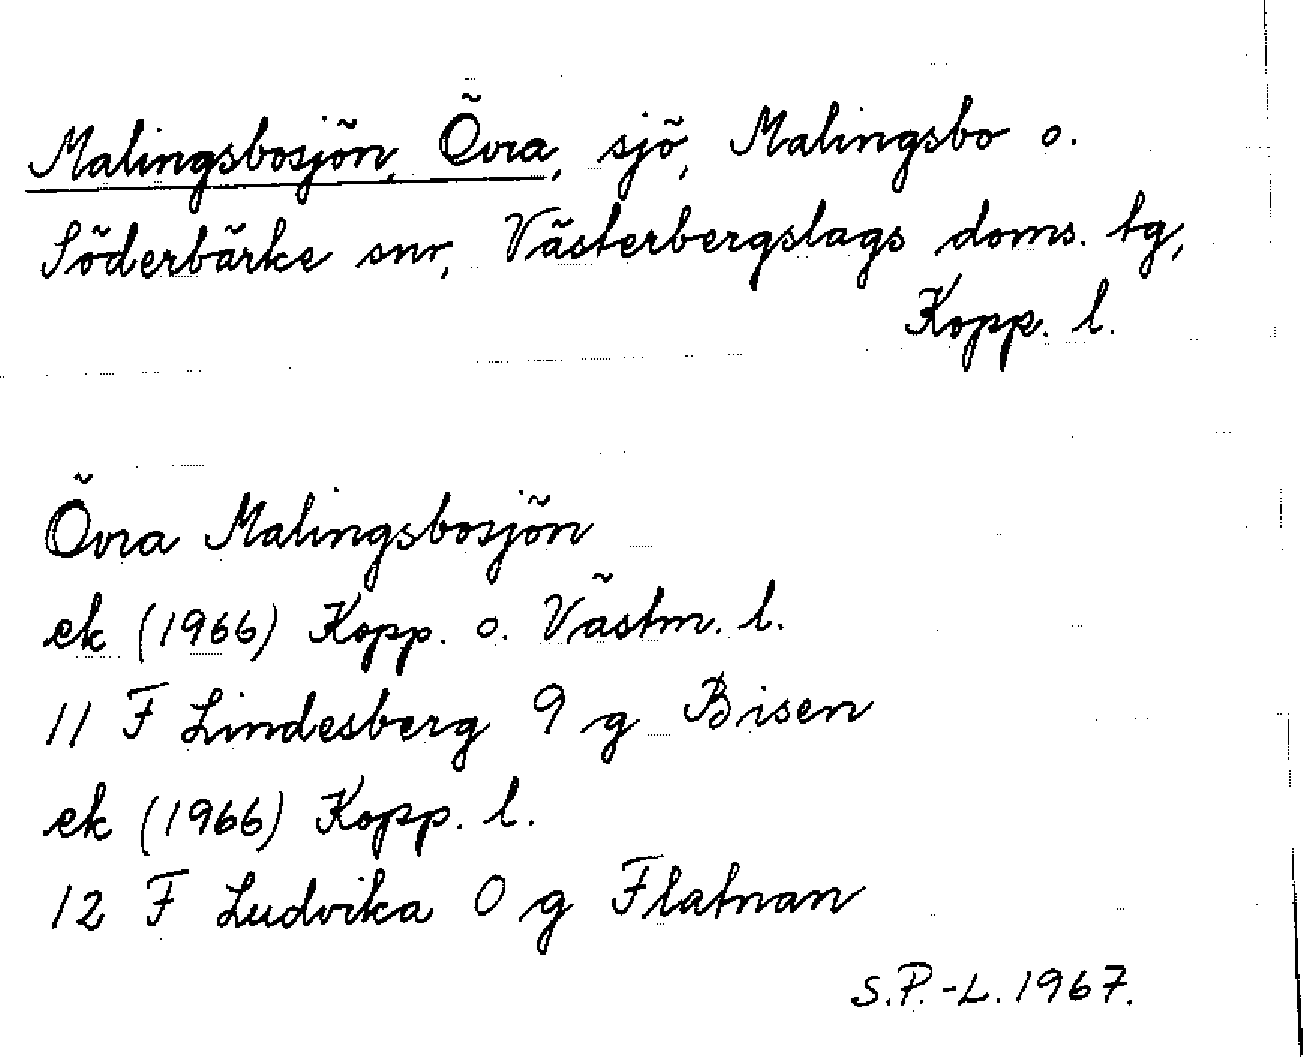 Malingsbosjön, Övra, sjö, Malingsbo o.
Söderbärke snr, Västerbergslags doms. tg,
Kopp. l.
Övra Malingsbosjön
ek (1966) Kopp. o. Västm. l.
11 F Lindesberg 9 g Bisen
ek (1966) Kopp. l.
12 F Ludvika 0 g Flatnan
S.P.-L. 1967.